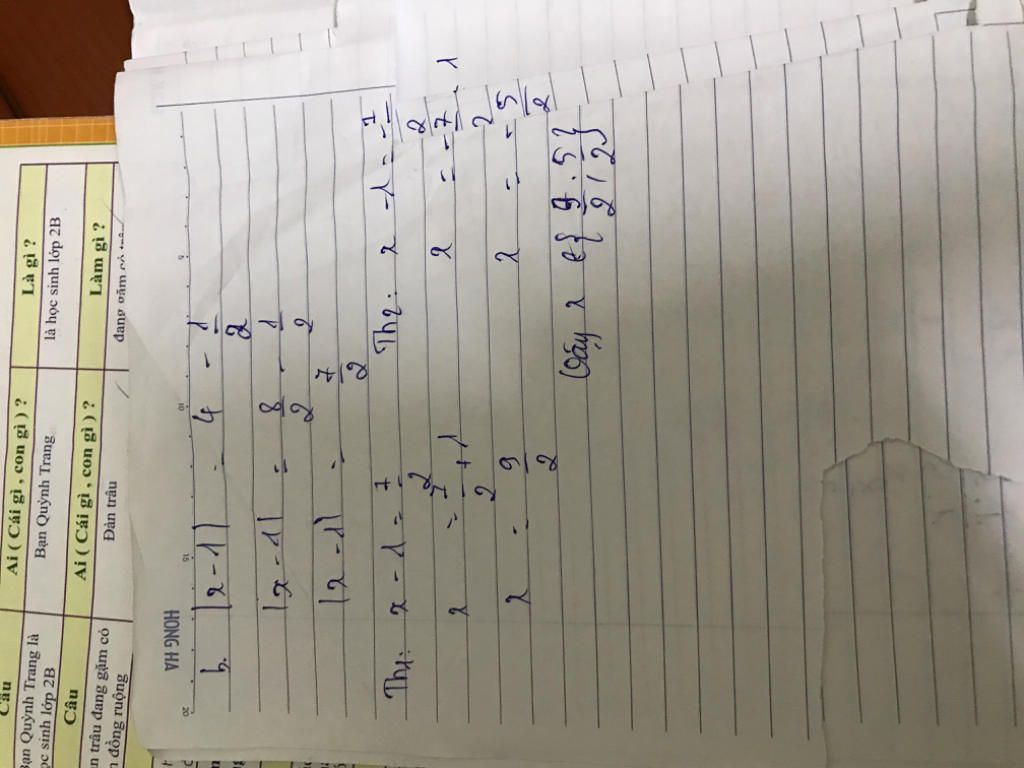 Câu
Ai ( Cái gì , con gì ) ?
Là gì ?
Bạn Quỳnh Trang là
học sinh lớp 2B
Bạn Quỳnh Trang
là học sinh lớp 2B
Câu
Ai ( Cái gì , con gì ) ?
Làm gì ?
n trâu đang gặm cỏ
n đồng ruộng
Đàn trâu
đang gặm cỏ
HONG HA
20 15 10 5
b. |x - 1| = 4 - 1/2
|x - 1| = 8/2 - 1/2
|x - 1| = 7/2
Th1: x - 1 = 7/2
x = 7/2 + 1
x = 9/2
Th2: x - 1 = -7/2
x = -7/2 . 1
x = -5/2
Vậy x ∈ { 9/2 ; 5/2 }